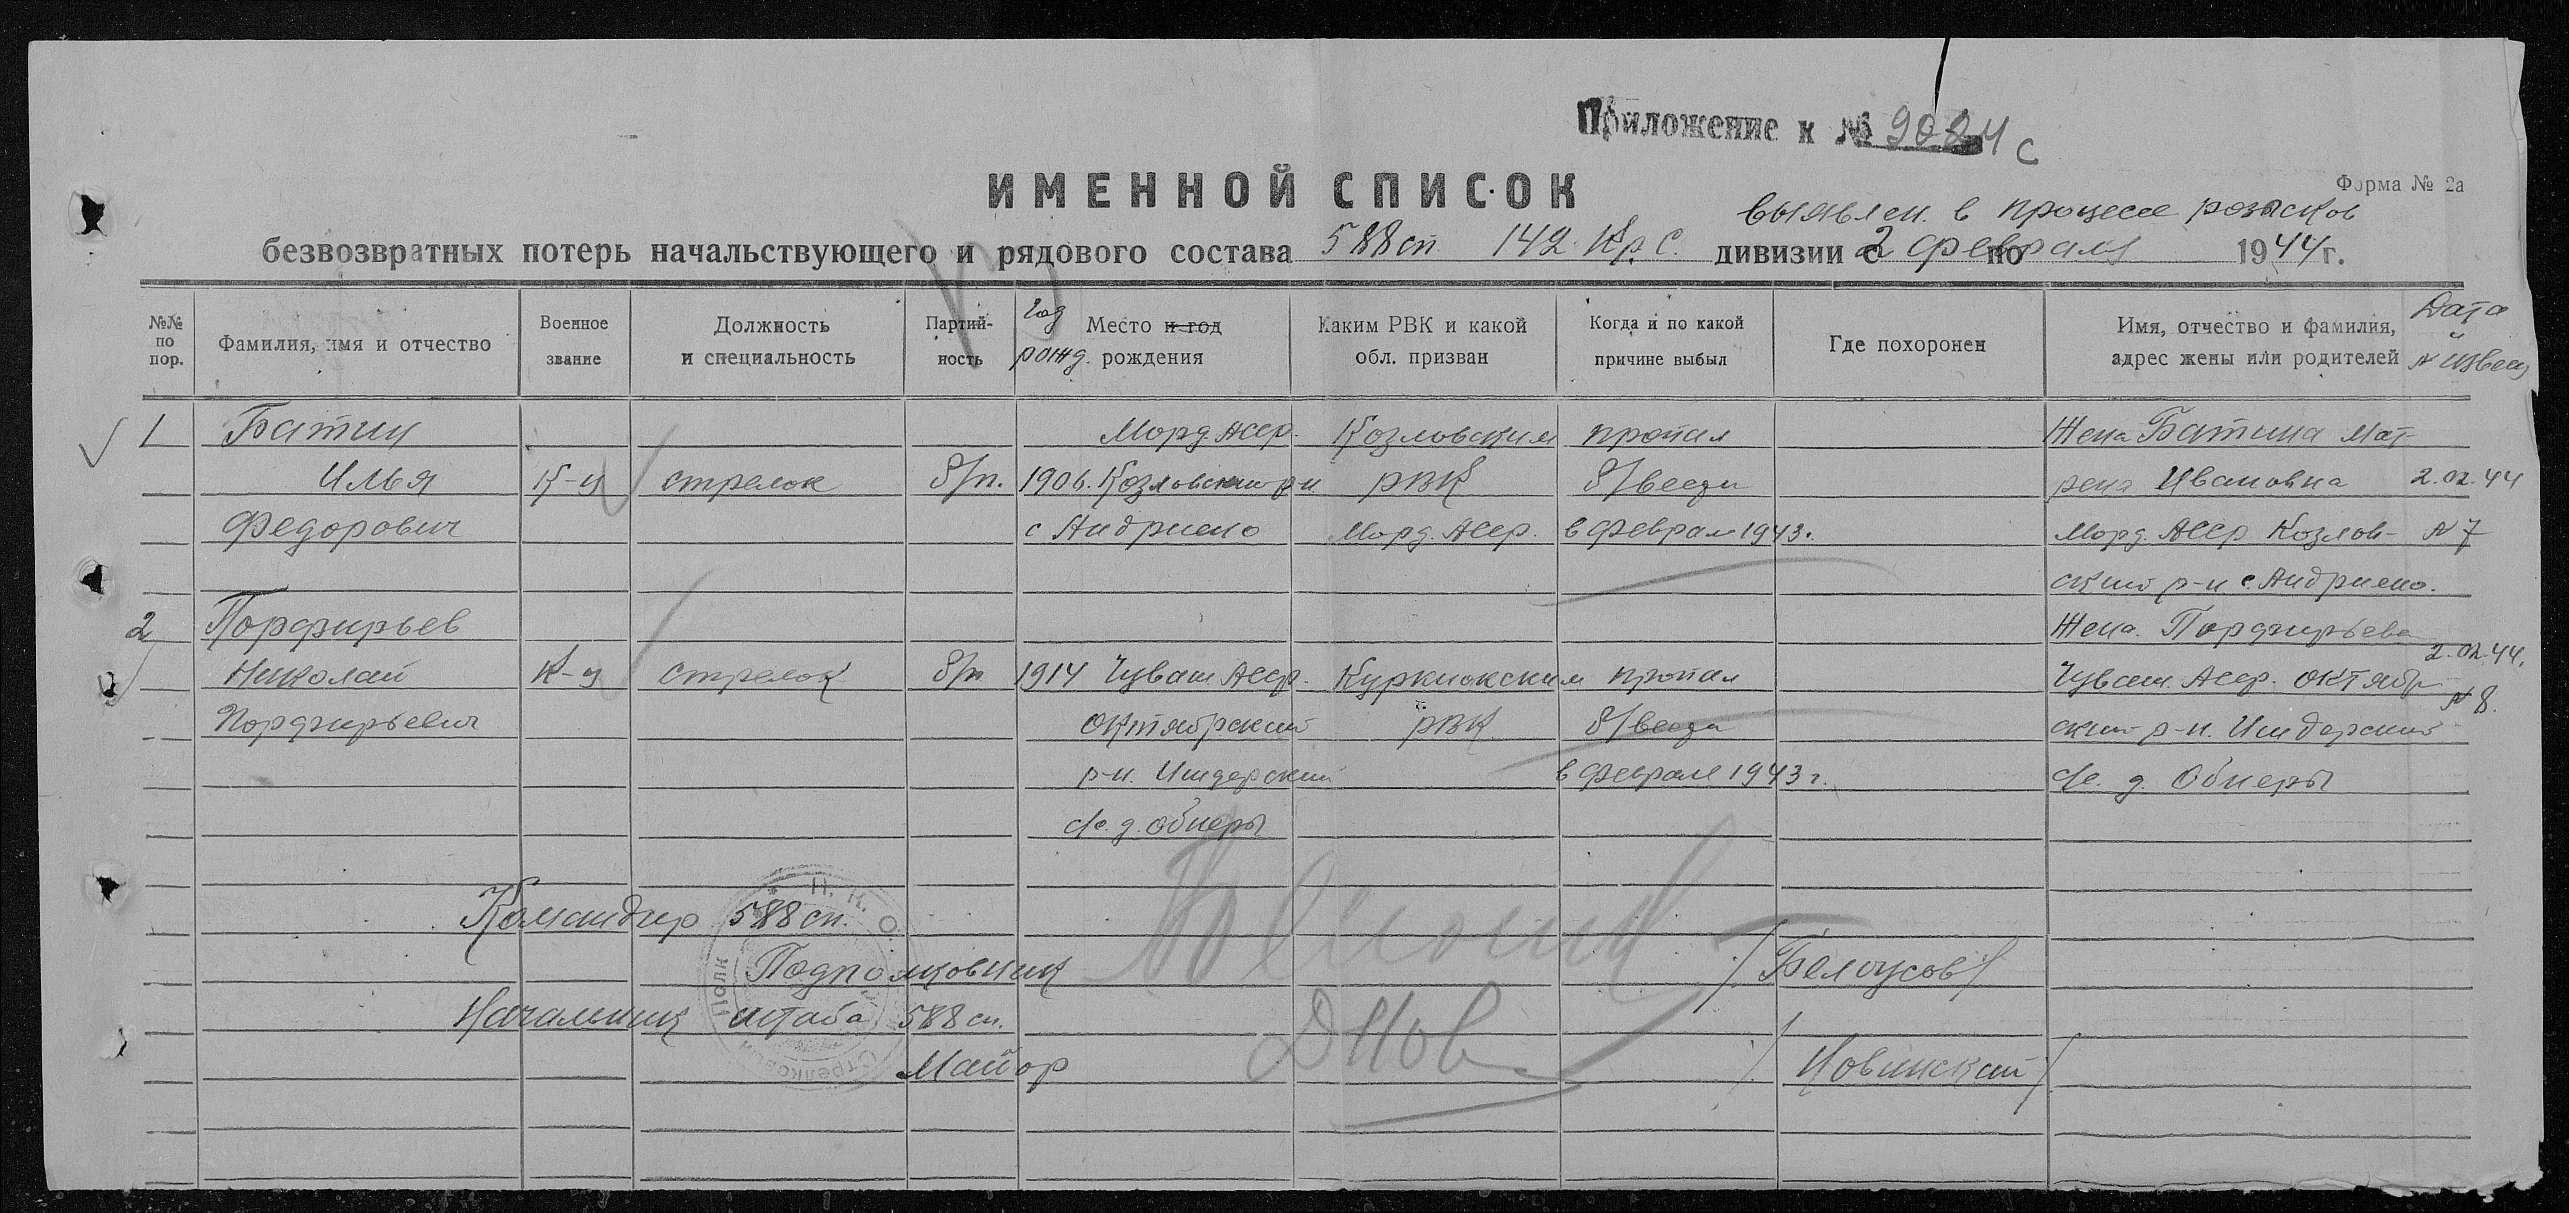 Приложение к № 9084 с
ИМЕННОЙ СПИСОК
Форма № 2а
выявлен. в процессе розысков
безвозвратных потерь начальствующего и рядового состава 588 сп. 142 Кр. С. дивизии с 2 февраля по 1944 г.
№№ по пор.
Фамилия, имя и отчество
Военное звание
Должность и специальность
Партий-ность
Год рожд.
Место и год рождения
Каким РВК и какой обл. призван
Когда и по какой причине выбыл
Где похоронен
Имя, отчество и фамилия, адрес жены или родителей
Дата и № извещ
1 Батин Морд. Асср. Козловским пропал Жена Батина Мат-
Илья К-ц стрелок б/п. 1906. Козловский р-н РВК б/вести рена Ивановна 2.02.44
Федорович с Андриено Морд. Асср. в феврал 1943. Морд. Асср Козлов- № 7
ский р-н с. Андриено.
2 Порфирьев Жена. Порфирьева
Николай К-ц стрелок б/п 1914 Чуваш Асср. Куркиокским пропал Чуваш. Асср. Октябр 2.02.44.
Порфирьевич Октябрский РВК б/вести ский р-н. Ишдерский № 8.
р-н. Ишдерский в феврале 1943 г. с/с. д. Обнеры
с/с. д. Обнеры
Н. К. О.
Командир 588 сп.
Подполковник / Белоусов /
Полк
Начальник штаба 588 сп.
Стрелковый
Майор / Новинский /